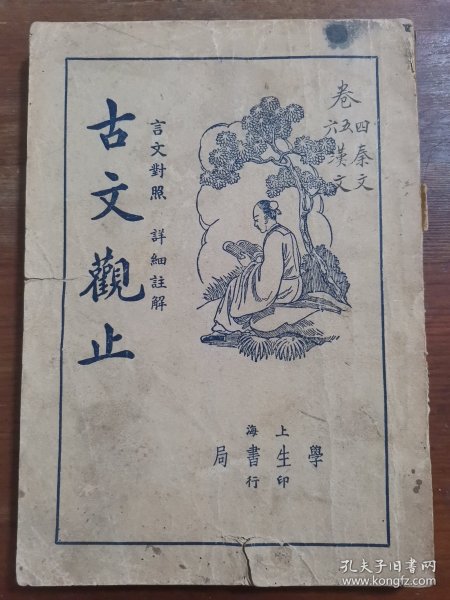 卷
四秦文
五漢文
六
言文對照 詳細註解
古文觀止
上海
學生書局
印行
孔夫子旧书网
www.kongfz.com